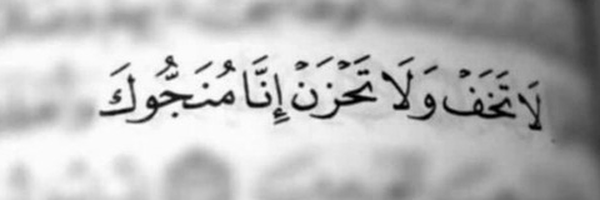 لَا تَخَفْ وَلَا تَحْزَنْ إِنَّا مُنَجُّوكَ